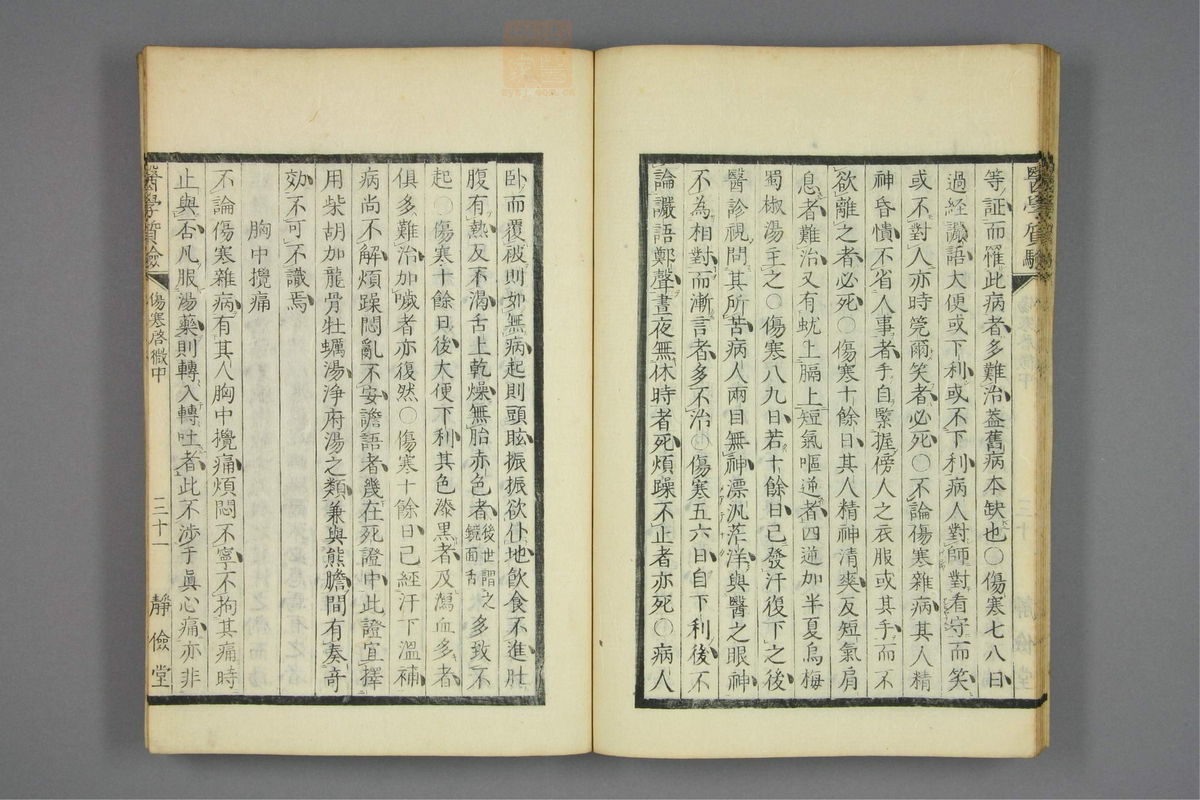 等証而罹此病者多難治蓋舊病本缺也〇傷寒七八日
過經讝語大便或下利或不下利病人對師對看守而笑
或不對人亦時筦爾笑者必死〇不論傷寒雜病其人精
神昏憒不省人事者手自緊握傍人之衣服或其手而不
欲離之者必死〇傷寒十餘日其人精神清爽反短氣肩
息者難治又有蚘上膈上短氣嘔逆者四逆加半夏烏梅
蜀椒湯主之〇傷寒八九日若十餘日已發汗復下之後
醫診視問其所苦病人兩目無神漂汎茫洋與醫之眼神
不為相對而漸言者多不治〇傷寒五六日自下利後不
論讝語鄭聲晝夜無休時者死煩躁不止者亦死〇病人
臥而覆被則如無病起則頭眩振振欲仆地飲食不進肚
腹有熱反不渴舌上乾燥無胎赤色者後世謂之鏡面舌多致不
起〇傷寒十餘日後大便下利其色漆黑者及瀉血多者
俱多難治加噦者亦復然〇傷寒十餘日已經汗下溫補
病尚不解煩躁悶亂不安譫語者幾在死證中此證宜擇
用柴胡加龍骨牡蠣湯淨府湯之類兼與熊膽間有奏奇
効不可不識焉
胸中攪痛
不論傷寒雜病有其人胸中攪痛煩悶不寧不拘其痛時
止與否凡服湯藥則轉入轉吐者此不涉于真心痛亦非
醫學質驗
傷寒啓微中
三十一
靜儉堂